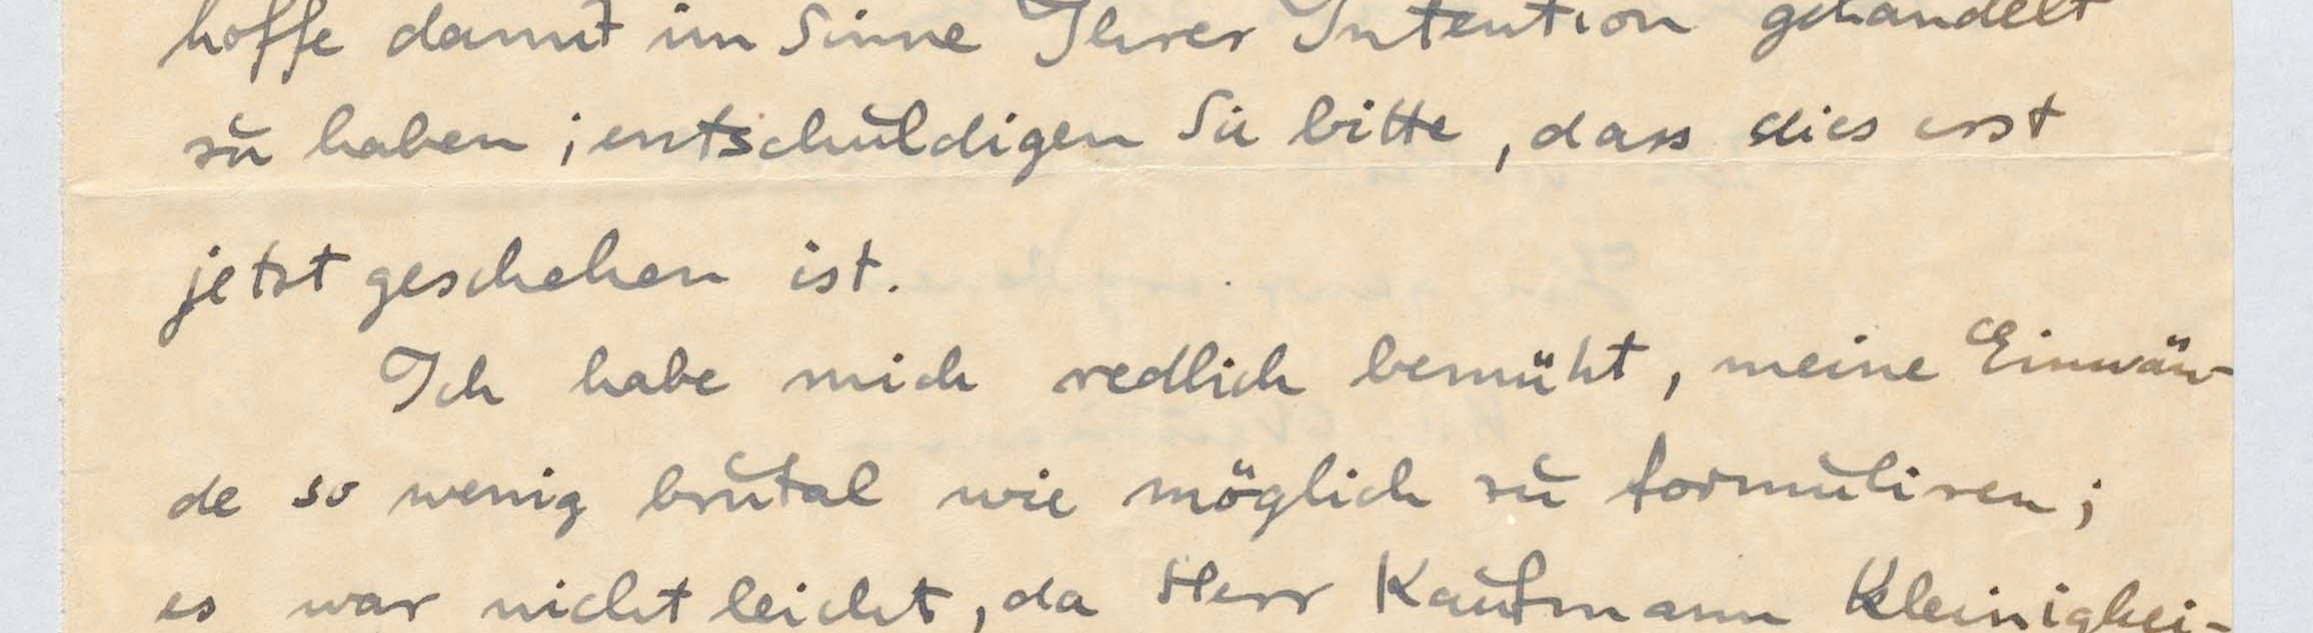 hoffe damit im Sinne Ihrer Intention gehandelt
zu haben; entschuldigen Sie bitte, dass dies erst
jetzt geschehen ist.
Ich habe mich redlich bemüht, meine Einwän-
de so wenig brutal wie möglich zu formuliren;
es war nicht leicht, da Herr Kaufmann Kleinigkei-